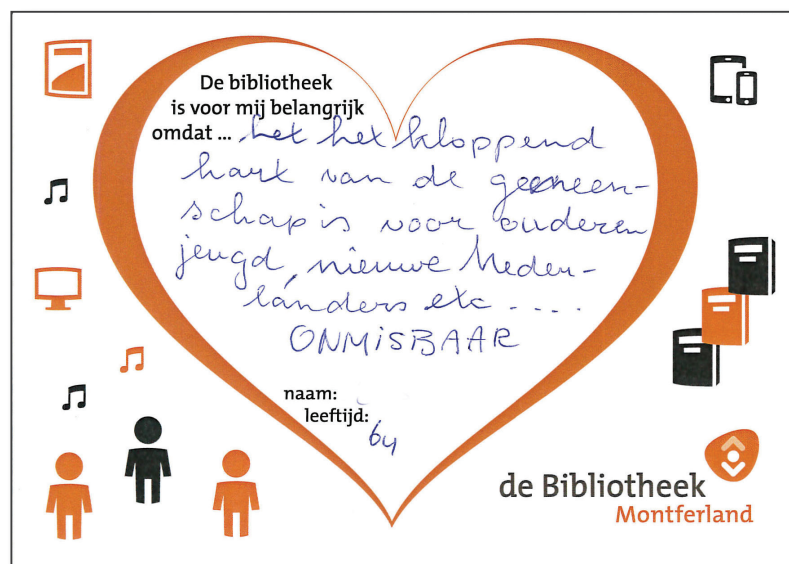 De bibliotheek
is voor mij belangrijk
omdat ... het het kloppend
hart van de gemeen-
schap is voor ouderen
jeugd, nieuwe Neder-
landers etc ....
ONMISBAAR
naam:
leeftijd: 64
de Bibliotheek
Montferland